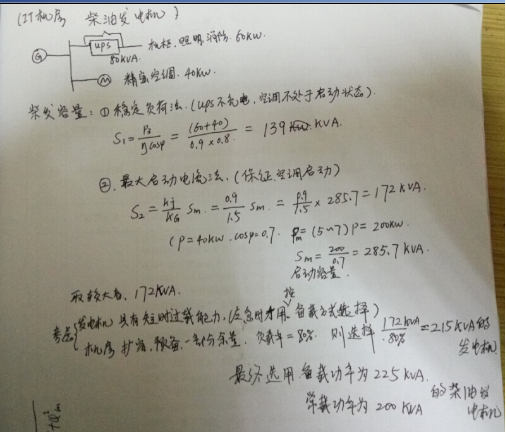 (IT机房 柴油发电机)
G
ups
80KVA.
机柜.照明.消防.60kw.
M 精密空调.40kw.
柴发容量: ① 稳定负荷法.(ups不充电,空调不处于启动状态).
S₁ = P₂/ηcosφ = (60+40)/0.9×0.8 = 139 KVA.
②.最大启动电流法.(保证空调启动)
S₂ = kj/KG Sm = 0.9/1.5 Sm = 0.9/1.5 × 285.7 = 172 KVA.
(P=40kw.cosφ=0.7. Pm=(5~7)P=200kw.
Sm = 200/0.7 = 285.7 KVA.
启动容量.
取较大者,172KVA.
考虑 发电机具有短时过载能力.(应急时才用 按备载方式选择)
机房扩容,预备一些余量,负载率=80%. 则选择 172KVA/80% = 215KVA的发电机
最终选用备载功率为225KVA.
常载功率为200KVA 的柴油发电机